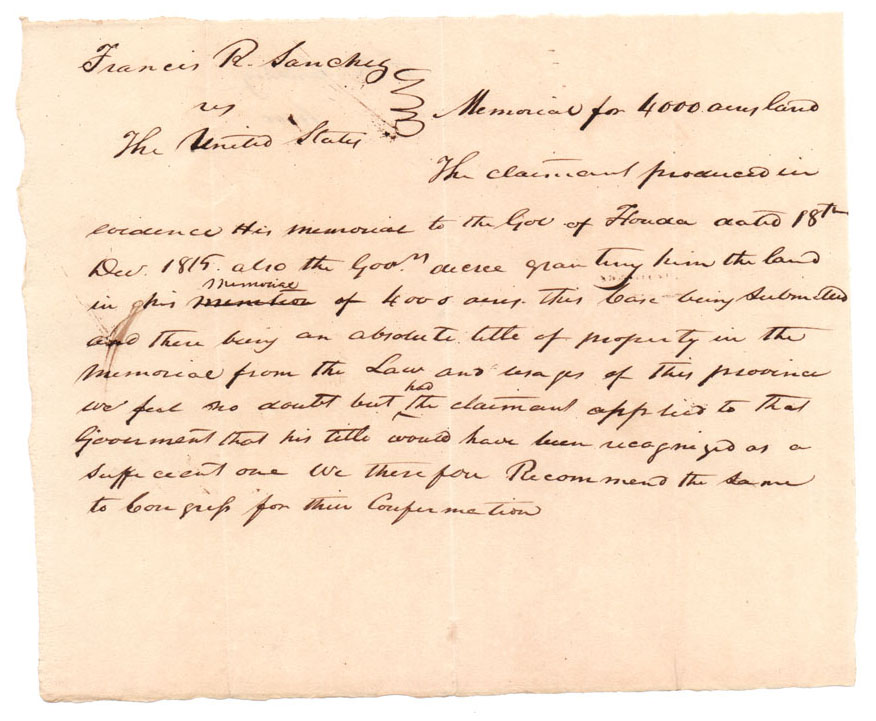 Francis R. Sanchez
vs
The United States
Memorial for 4000 acres land
The claimant produced in
evidence His memorial to the Gov of Florida dated 18th
Decr. 1815. also the Govr.s decree granting him the land
in his memorial of 4000 acres. this Case being Submitted
and there being an absolute title of property in the
memorial from the Law and usages of this province
we feel no doubt but had the claimant applied to that
Goverment that his title would have been recognized as a
sufficient one We therefore Recommend the same
to Congress for their Confirmation